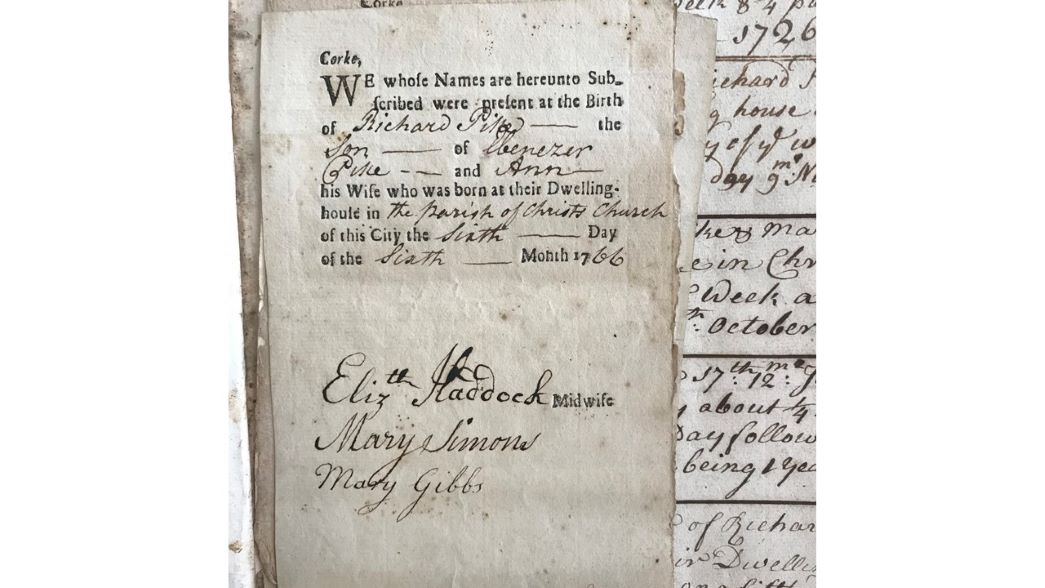 Corke
Corke,
WE whoſe Names are hereunto Sub-
ſcribed were preſent at the Birth
of Richard Pike — the
Son — of Ebenezer
Pike — and Ann —
his Wife who was born at their Dwelling-
houſe in the Parish of Christs Church
of this City the Sixth — Day
of the Sixth — Month 1766
Elizth Haddock Midwife
Mary Simons
Mary Gibbs
1726
house
October
17th: 12th
about 1/4
Day follow
being 1
of Richar
Dwelli